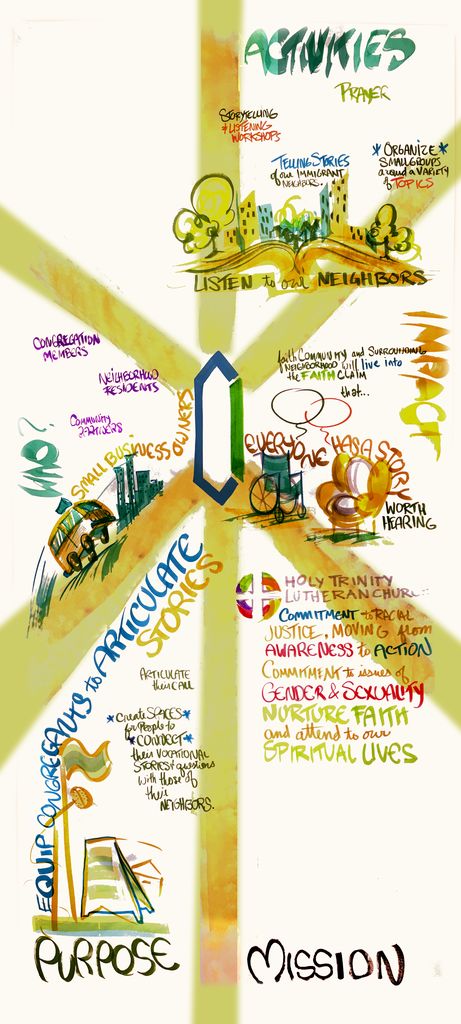 ACTIVITIES
PRAYER
STORYTELLING
& LISTENING
WORKSHOPS
TELLING STORIES
of our IMMIGRANT
NEIGHBORS.
* ORGANIZE *
SMALL GROUPS
around a VARIETY
of TOPICS
LISTEN to our NEIGHBORS
IMPACT
faith COMMUNITY and SURROUNDING
NEIGHBORHOOD will live into
the FAITH CLAIM
that...
EVERYONE HAS A STORY
WORTH
HEARING
WHO?
CONGREGATION
MEMBERS
NEIGHBORHOOD
RESIDENTS
COMMUNITY
PARTNERS
SMALL BUSINESS OWNERS
HOLY TRINITY
LUTHERAN CHURCH:
COMMITMENT to RACIAL
JUSTICE, MOVING from
AWARENESS to ACTION
COMMITMENT to issues of
GENDER & SEXUALITY
NURTURE FAITH
and attend to our
SPIRITUAL LIVES
MISSION
EQUIP CONGREGANTS to ARTICULATE
STORIES
ARTICULATE
their CALL
* Create SPACES
for People to
* CONNECT *
their VOCATIONAL
STORIES & questions
with those of
their
NEIGHBORS.
PURPOSE